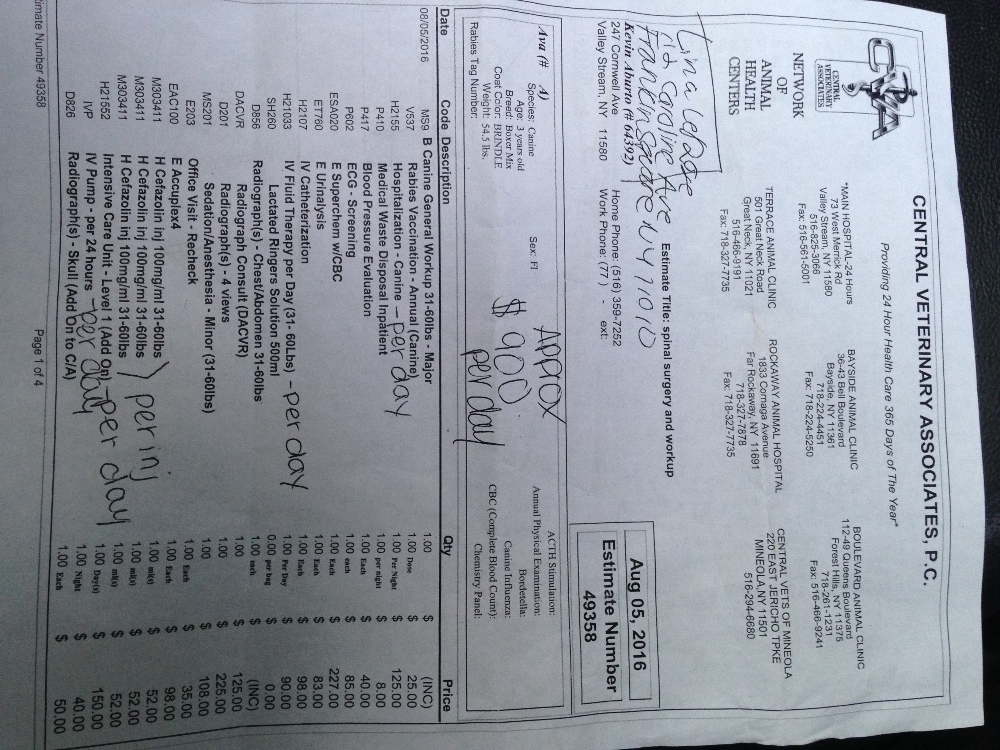 CENTRAL VETERINARY ASSOCIATES, P.C.
Providing 24 Hour Health Care 365 Days of The Year"
CVA
CENTRAL
VETERINARY
ASSOCIATES
NETWORK
OF
ANIMAL
HEALTH
CENTERS
*MAIN HOSPITAL-24 Hours
73 West Merrick Rd
Valley Stream, NY 11580
516-825-3066
Fax: 516-561-5001
BAYSIDE ANIMAL CLINIC
36-43 Bell Boulevard
Bayside, NY 11361
718-224-4451
Fax: 718-224-5250
BOULEVARD ANIMAL CLINIC
112-49 Queens Boulevard
Forest Hills, NY 11375
718-261-1231
Fax: 516-466-9241
TERRACE ANIMAL CLINIC
501 Great Neck Road
Great Neck, NY 11021
516-466-9191
Fax: 718-327-7735
ROCKAWAY ANIMAL HOSPITAL
1833 Cornaga Avenue
Far Rockaway, NY 11691
718-327-7878
Fax: 718-327-7735
CENTRAL VETS OF MINEOLA
220 EAST JERICHO TPKE
MINEOLA,NY 11501
516-294-6680
Franklin Square NY 11010
Estimate Title: spinal surgery and workup
Kevin Aburto (# 64392)
247 Cornwell Ave
Valley Stream, NY 11580
Home Phone: (516) 359-7252
Work Phone: (77 ) - ext:
Aug 05, 2016
Estimate Number
49358
Ava (# A)
Species: Canine
Age: 3 years old
Breed: Boxer Mix
Coat Color: BRINDLE
Weight: 54.5 lbs.
Rabies Tag Number:
Sex: FI
Approx
$ 900
per day
ACTH Stimulation:
Annual Physical Examination:
Bordetella:
Canine Influenza:
CBC (Complete Blood Count):
Chemistry Panel:
Date Code Description Qty Price
08/05/2016 MS9 B Canine General Workup 31-60lbs - Major 1.00 $ (INC)
V537 Rabies Vaccination - Annual (Canine) 1.00 Dose $ 25.00
H2155 Hospitalization - Canine - per day 1.00 Per Night $ 125.00
P410 Medical Waste Disposal Inpatient 1.00 per night $ 8.00
P417 Blood Pressure Evaluation 1.00 Each $ 40.00
P602 ECG - Screening 1.00 each $ 85.00
ESA020 E Superchem w/CBC 1.00 Each $ 227.00
ET780 E Urinalysis 1.00 Each $ 83.00
H2107 IV Catheterization 1.00 Each $ 98.00
H21033 IV Fluid Therapy per Day (31- 60Lbs) - per day 1.00 Per Day $ 90.00
SH260 Lactated Ringers Solution 500ml 0.00 per bag $ 0.00
D856 Radiograph(s) - Chest/Abdomen 31-60lbs 1.00 each $ (INC)
DACVR Radiograph Consult (DACVR) 1.00 Each $ 125.00
D201 Radiographs - 4 views 1.00 $ 225.00
MS201 Sedation/Anesthesia - Minor (31-60lbs) 1.00 $ 108.00
E203 Office Visit - Recheck 1.00 Each $ 35.00
EAC100 E Accuplex4 1.00 Each $ 98.00
M303411 H Cefazolin inj 100mg/ml 31-60lbs 1.00 ml(s) $ 52.00
M303411 H Cefazolin inj 100mg/ml 31-60lbs 1.00 ml(s) $ 52.00
M303411 H Cefazolin inj 100mg/ml 31-60lbs 1.00 ml(s) $ 52.00
per inj
H21552 Intensive Care Unit - Level 1 (Add On) - per day 1.00 Day(s) $ 150.00
IVP IV Pump - per 24 hours - per day 1.00 Night $ 40.00
D826 Radiograph(s) - Skull (Add On to C/A) 1.00 Each $ 50.00
imate Number 49358 Page 1 of 4